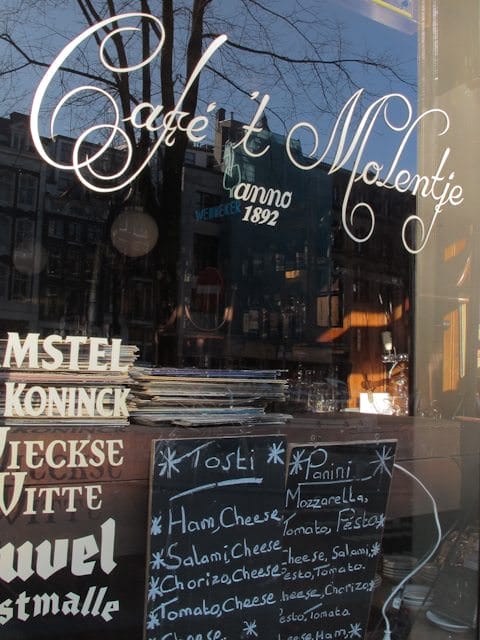 Café 't Molentje
anno
1892
MSTEL
KONINCK
WIECKSE
WITTE
uvel
stmalle
Tosti
Ham, Cheese
Salami, Cheese
Chorizo, Cheese
Tomato, Cheese
Cheese
Panini
Mozzarella,
Tomato, Pesto
Cheese, Salami,
Pesto, Tomato.
Cheese, Chorizo,
Pesto, Tomato
Cheese, Ham,